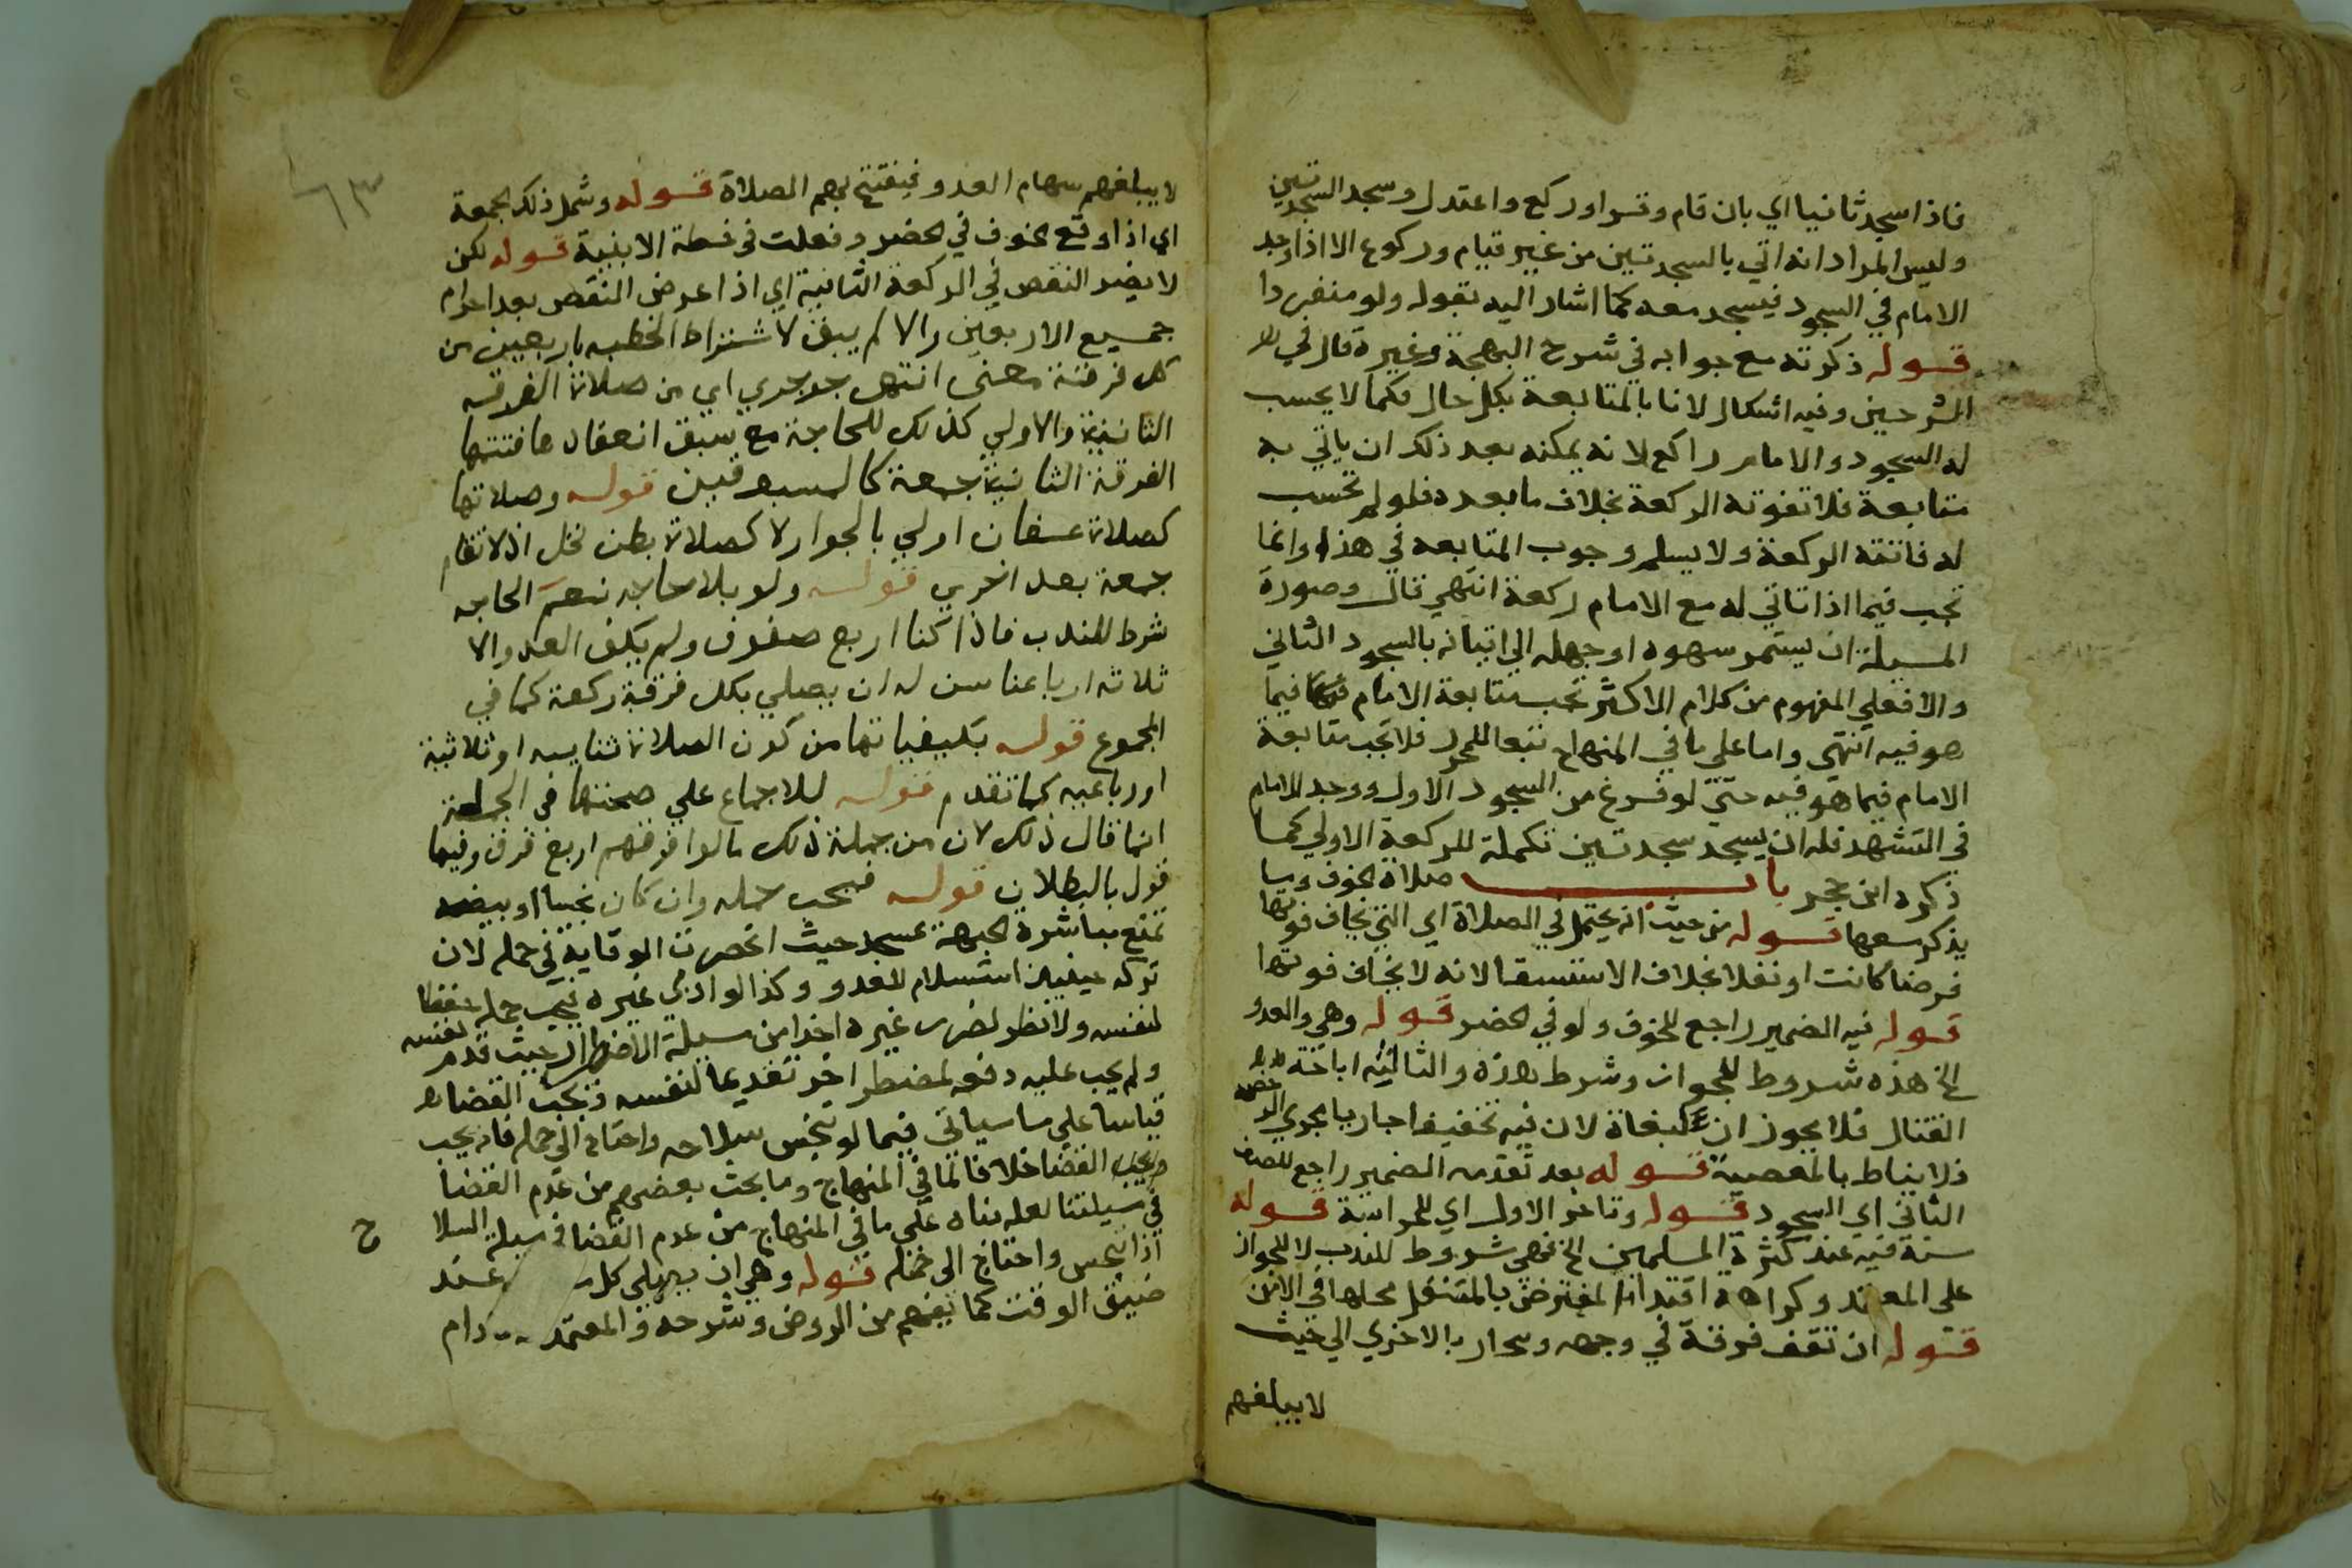 فاذا سجد ثانيا اي بان قام وقرا وركع واعتدل وسجد السجدتين
وليس المراد انه اتي بالسجدتين من غير قيام وركوع الا اذا وجد
الامام في السجود فيسجد معه كما اشار اليه بقوله ولو منفردا
قوله ذكرته مع جوابه في شرح البهجة وغيره قال في
الشرحين وفيه اشكال لانا بالمتابعة بكل حال فكما لا يحسب
له السجود والامام راكع لانه يمكنه بعد ذلك ان ياتي به
متابعة فلا تفوته الركعة بخلاف ما بعده فلو لم تحسب
له فاتته الركعة ولا يسلم وجوب المتابعة في هذا وانما
تجب فيما اذا تاتي له مع الامام ركعة انتهي قال وصورة
المسيلة ان يستمر سهوه او جهله الي اتيانه بالسجود الثاني
والا فعلي المفهوم من كلام الاكثر تجب متابعة الامام فيما
هو فيه انتهي واما علي ما في المنهاج تبعا للمحرر فلا تجب متابعة
الامام فيما هو فيه حتي لو فرغ من السجود الاول ووجد الامام
في التشهد فله ان يسجد سجدتين تكملة للركعة الاولي كما
ذكره ابن حجر باب صلاة الخوف وما
يذكر معها قوله من حيث انه يحتمل في الصلاة اي التي يخاف فوتها
فرضا كانت او نفلا بخلاف الاستسقا لانه لا يخاف فوتها
قوله فيه الضمير راجع للخوف ولو في الحضر قوله وهي والعدو
الخ هذه شروط للجواز وشرط هذه والثالثة اباحة
القتال فلا يجوز ان لبغاة لان فيه تخفيفا جاريا مجري الرخصة
فلا يناط بالمعصية قوله بعد تقدمه الضمير راجع للصف
الثاني اي السجود قوله وتاخر الاول اي للحراسة قوله
سنة فيه عند كثرة المسلمين الخ فهي شروط للندب لا للجواز
علي المعتمد وكراهة اقتدا المفترض بالمتنفل محلها في الامن
قوله ان تقف فرقة في وجهه وينحاز بالاخري الي حيث
لا يبلغهم
٦٣
لا يبلغهم سهام العدو فيفتتح بهم الصلاة قوله وشمل ذلك الجمعة
اي اذا وقع الخوف في الحضر وفعلت في خطة الابنية قوله لكن
لا يضر النقص في الركعة الثانية اي اذا عرض النقص بعد احرام
جميع الاربعين والا لم يبق لاشتراط الخطبه باربعين من
كل فرقة معني انتهي جوجري اي من صلاة الفرقه
الثانية والاولي كذلك للحاجة مع سبق انعقادها فتتمها
الفرقة الثانية جمعة كالمسبوقين قوله وصلاتها
كصلاة عسفان اولي بالجواز لا كصلاة بطن نخل اذ لا تقام
جمعة بعد اخري قوله ولو بلا حاجه نعم الحاجه
شرط للندب فاذا كنا اربع صفوف ولم يكف العدو الا
ثلاثه ارباعنا سن له ان يصلي بكل فرقة ركعة كما في
المجموع قوله بكيفياتها من كون الصلاة ثناييه او ثلاثية
او رباعيه كما تقدم قوله للاجماع علي صحتها في الجملة
انما قال ذلك لان من جملة ذلك ما لو فرقهم اربع فرق وفيها
قول بالبطلان قوله فيجب حمله وان كان نجسا او بيضه
تمنع مباشرة الجبهة عسجد حيث انحصرت الوقاية في حمله لان
تركه حينيذ استسلام للعدو وكذا لو اذي غيره فيجب حمله حفظا
لنفسه ولا نظر لضرر غيره اخذا من مسيلة الاضطرار حيث قدم نفسه
ولم يجب عليه دفعه لمضطر اخر تقديما لنفسه ويجب القضا
قياسا علي ما سياتي فيما لو تنجس سلاحه واحتاج الي حمله فانه يجب
القضا خلافا لما في المنهاج وما بحث بعضهم من عدم القضا
في مسيلتنا لعله بناه علي ما في المنهاج من عدم القضا في مسيلة السلا
ح
اذا تنجس واحتاج الي حمله قوله وهي ان يصلي كل عند
ضيق الوقت كما يفهم من الروض وشرحه والمعتمد دام